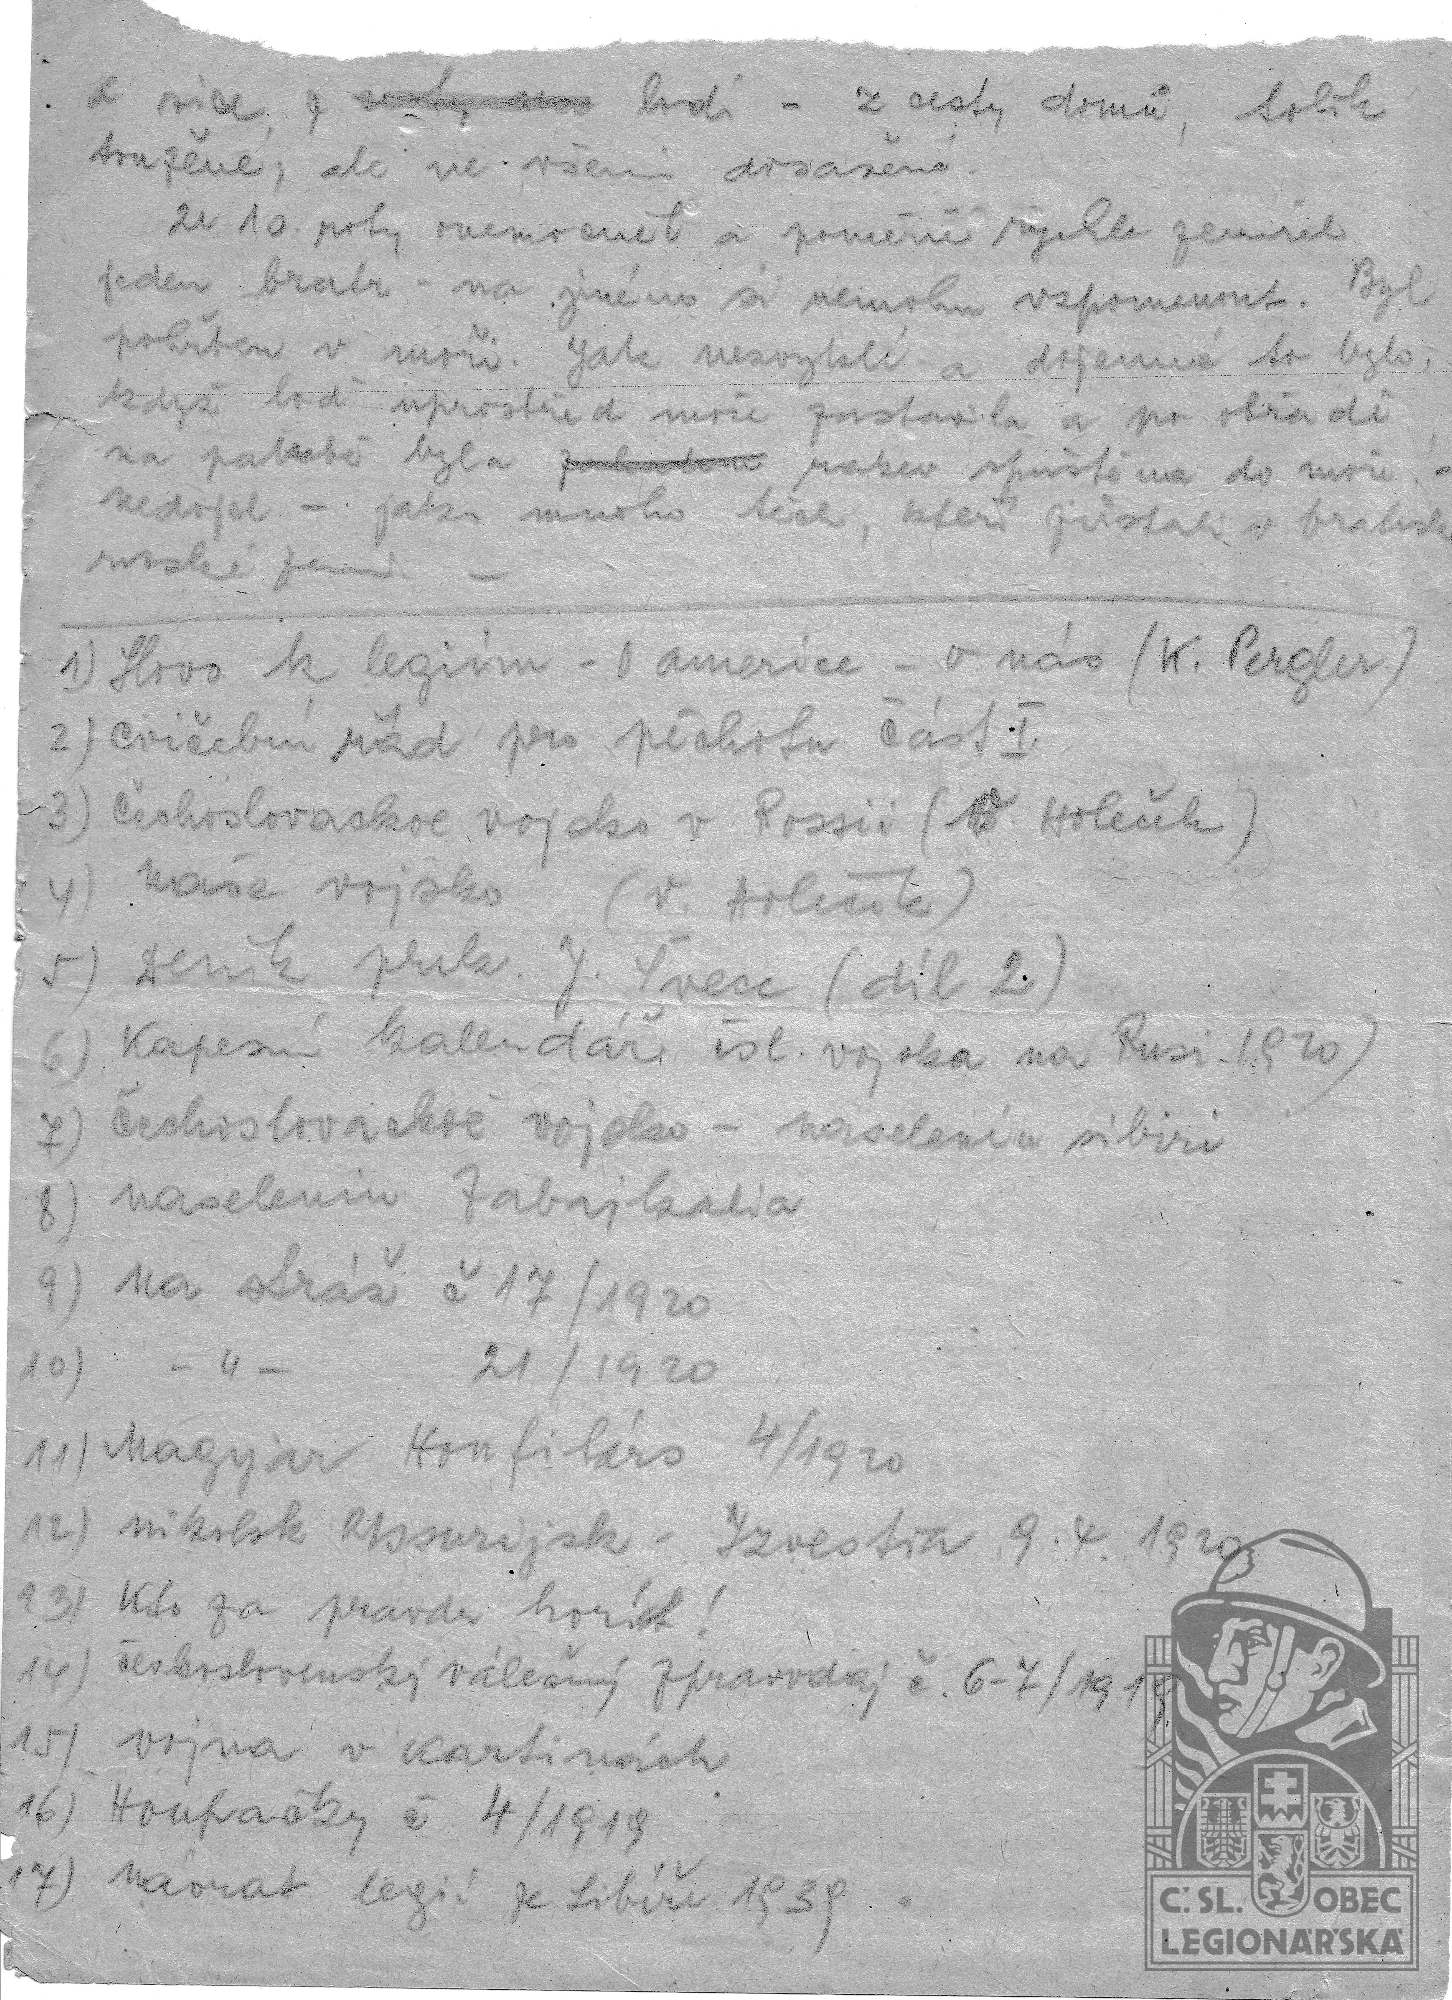 a více z lodi - z cesty domů, tolik
toužené, ale ne všemi dosažené.
Zr 10. roty onemocněl a poměrně rychle zemřel
jeden bratr - na jméno si nemohu vzpomenout. Byl
pohřben v moři. Jak nezvyklé a dojemné to bylo,
když loď uprostřed moře zastavila a po obřadě
na palubě byla rakev spuštěna do moře. -
Nedojel - jako mnoho těch, kteří zůstali v bratrsk
ruské zemi -
1) Slovo k legiím - O americe o nás (K. Pergler)
2) Cvičební řád pro pěchotu část I.
3) Českoslovackoe vojsko v Rossii (V Holeček)
4) Naše vojsko (V. Holeček)
5) Deník pluk. J. Švece (díl 2.)
6) Kapesní kalendář čsl. vojska na Rusi 1920)
7) Českoslovackoe vojsko - naseleniu sibiri
8) naseleniu Zabajkalia
9) Na stráž č 17/1920
10) - " - 21/1920
11) Magyar Honfitárs 4/1920
12) Nikolsk Ussurijsk - Izvestia 9.4. 1920
13) Kdo za pravdu horí!
14) Československý válečný zpravodaj č. 6-7/1918
15) Vojna v kartinách
16) Houpačky č 4/1919
17) Návrat legií ze Sibiře 1939.
Č.SL. OBEC
LEGIONÁŘSKÁ